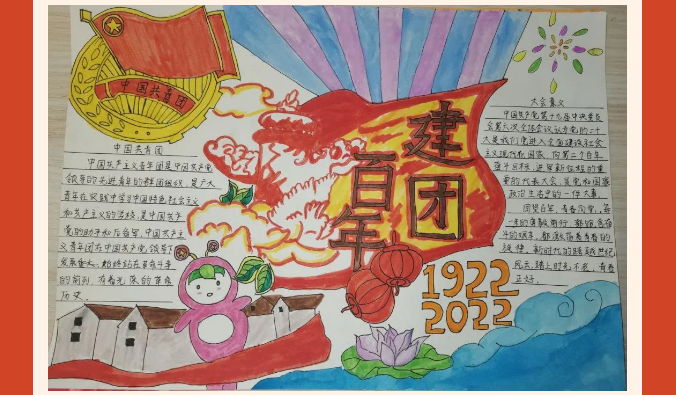 中国共青团
建团
百年
1922
2022
中国共青团
中国共产主义青年团是中国共产党
领导的先进青年的群团组织,是广大
青年在实践中学习中国特色社会主义
和共产主义的学校,是中国共产
党的助手和后备军。中国共产主
义青年团在中国共产党领导下
发展壮大,始终站在革命斗争
的前列,有着光荣的革命
历史。
大会意义
中国共产党第十九届中央委员
会第六次全体会议认为党的二十
大是我们党进入全面建设社会
主义现代化国家、向第二个百年
奋斗目标,进军新征程的重
要的代表大会,是党和国家
政治生活中的一件大事。
回望百年,青春向党,每
一 前行,都饱含奋
斗的艰辛,都激扬着青春的
旋律。新时代的 跨越世纪
风云,踏上时光不老,青春
正好。